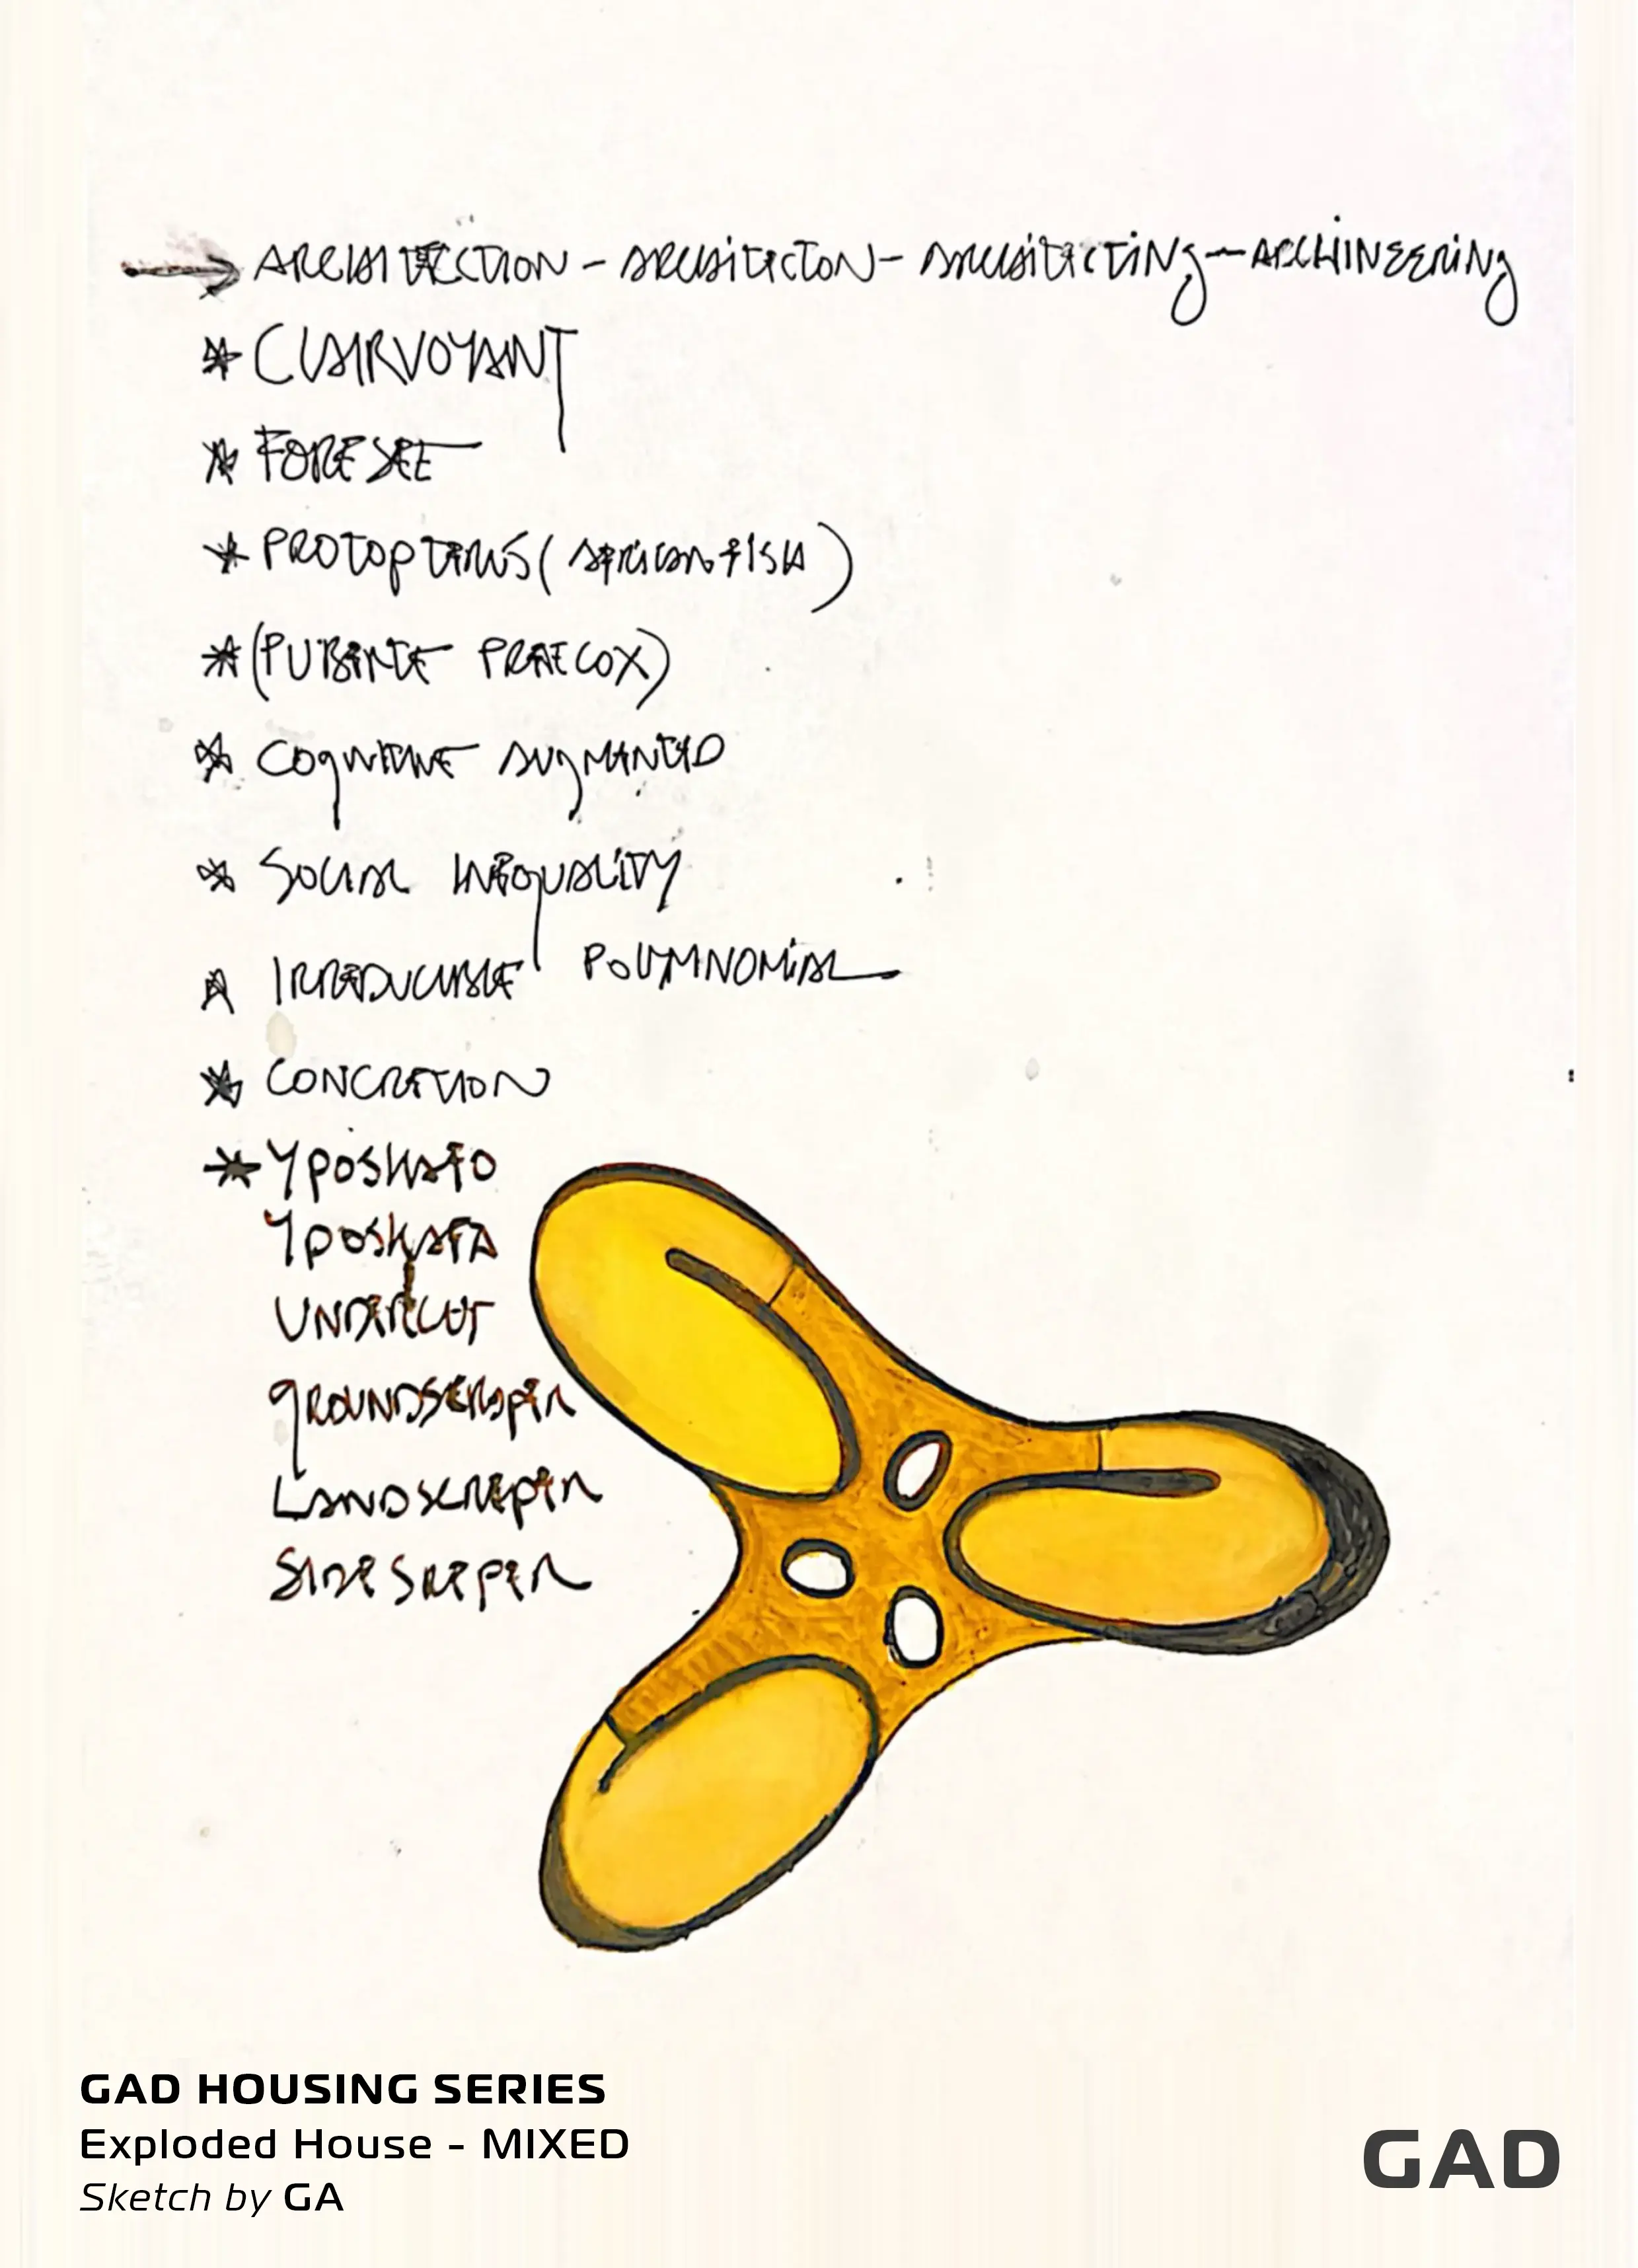 → ARCHITECTION - ARCHITECTON - ARCHITECTING - ARCHINEERING
* CLAIRVOYANT
* FORESEE
* PROTOPTERUS (AFRICAN FISH)
* (PUBERTE PRAECOX)
* COGNITIVE AUGMANTED
* SOCIAL INEQUALITY
* IRREDUCIBLE POLYMNOMIAL
* CONCRETION
* YPOSKAFO
YPOSKAFA
UNDERCUT
GROUNDSCRAPER
LANDSCREPER
SIDESKEPER
GAD HOUSING SERIES
Exploded House - MIXED
Sketch by GA
GAD